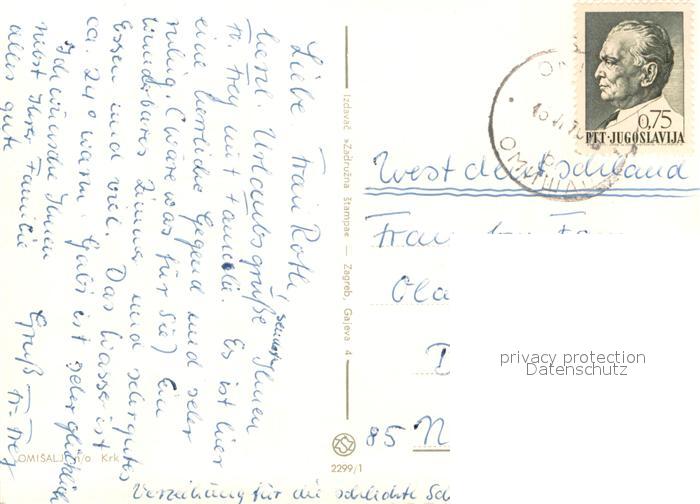 Liebe Frau Roth,
herzl. Urlaubsgrüße sendet Ihnen
Fr. Frey mit Familie. Es ist hier
eine herrliche Gegend und sehr
ruhig. (wäre was für Sie) Ein
wunderbares Zimmer und sehr gutes
Essen und viel. Das Wasser ist
ca. 24° warm. Gabi ist sehr glücklich
Ich wünsche Ihnen
nebst Ihrer Familie
alles gute
Gruß Fr. Frey
Verzeihung für die schlichte Sch
OMIŠALJ n/o Krk
Izdavač »Zadružna štampa« — Zagreb, Gajeva 4
2299/1
0,75
PTT·JUGOSLAVIJA
OMIŠALJ
Westdeutschland
Frau
85 N
privacy protection
Datenschutz